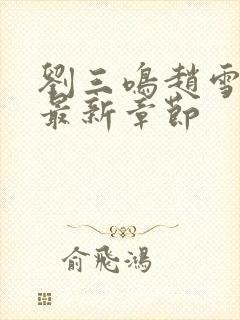 劉三鳴趙雪
最新章節
俞飛鴻